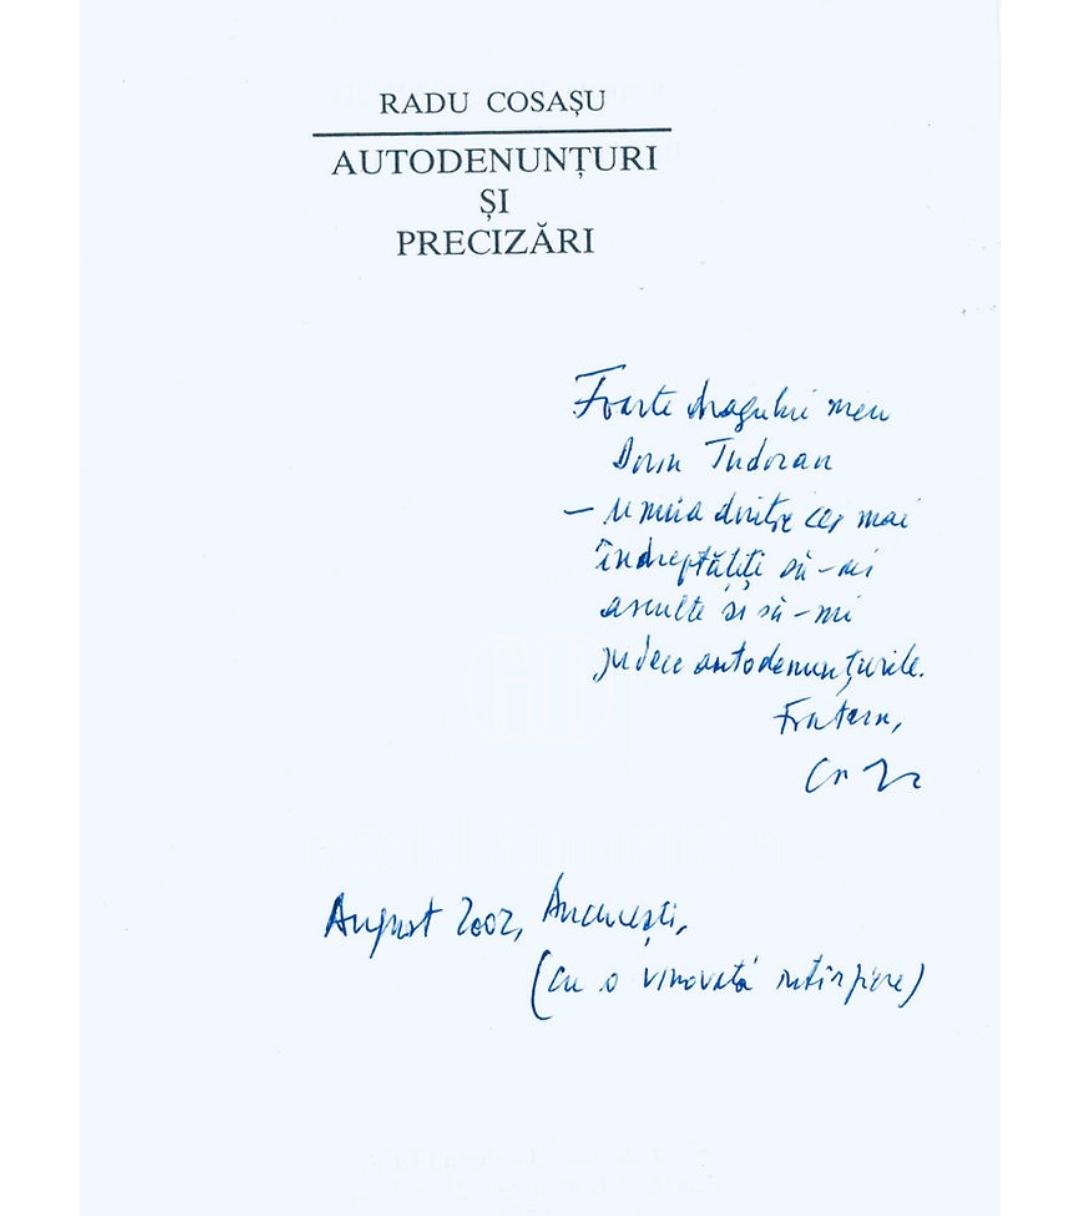 RADU COSAȘU
AUTODENUNȚURI
ȘI
PRECIZĂRI
Foarte dragului meu
Dorin Tudoran
– unuia dintre cei mai
îndreptățiți să-mi
asculte și să-mi
judece autodenunțurile.
Fratern,
August 2002, București,
(cu o vinovată întîrziere)